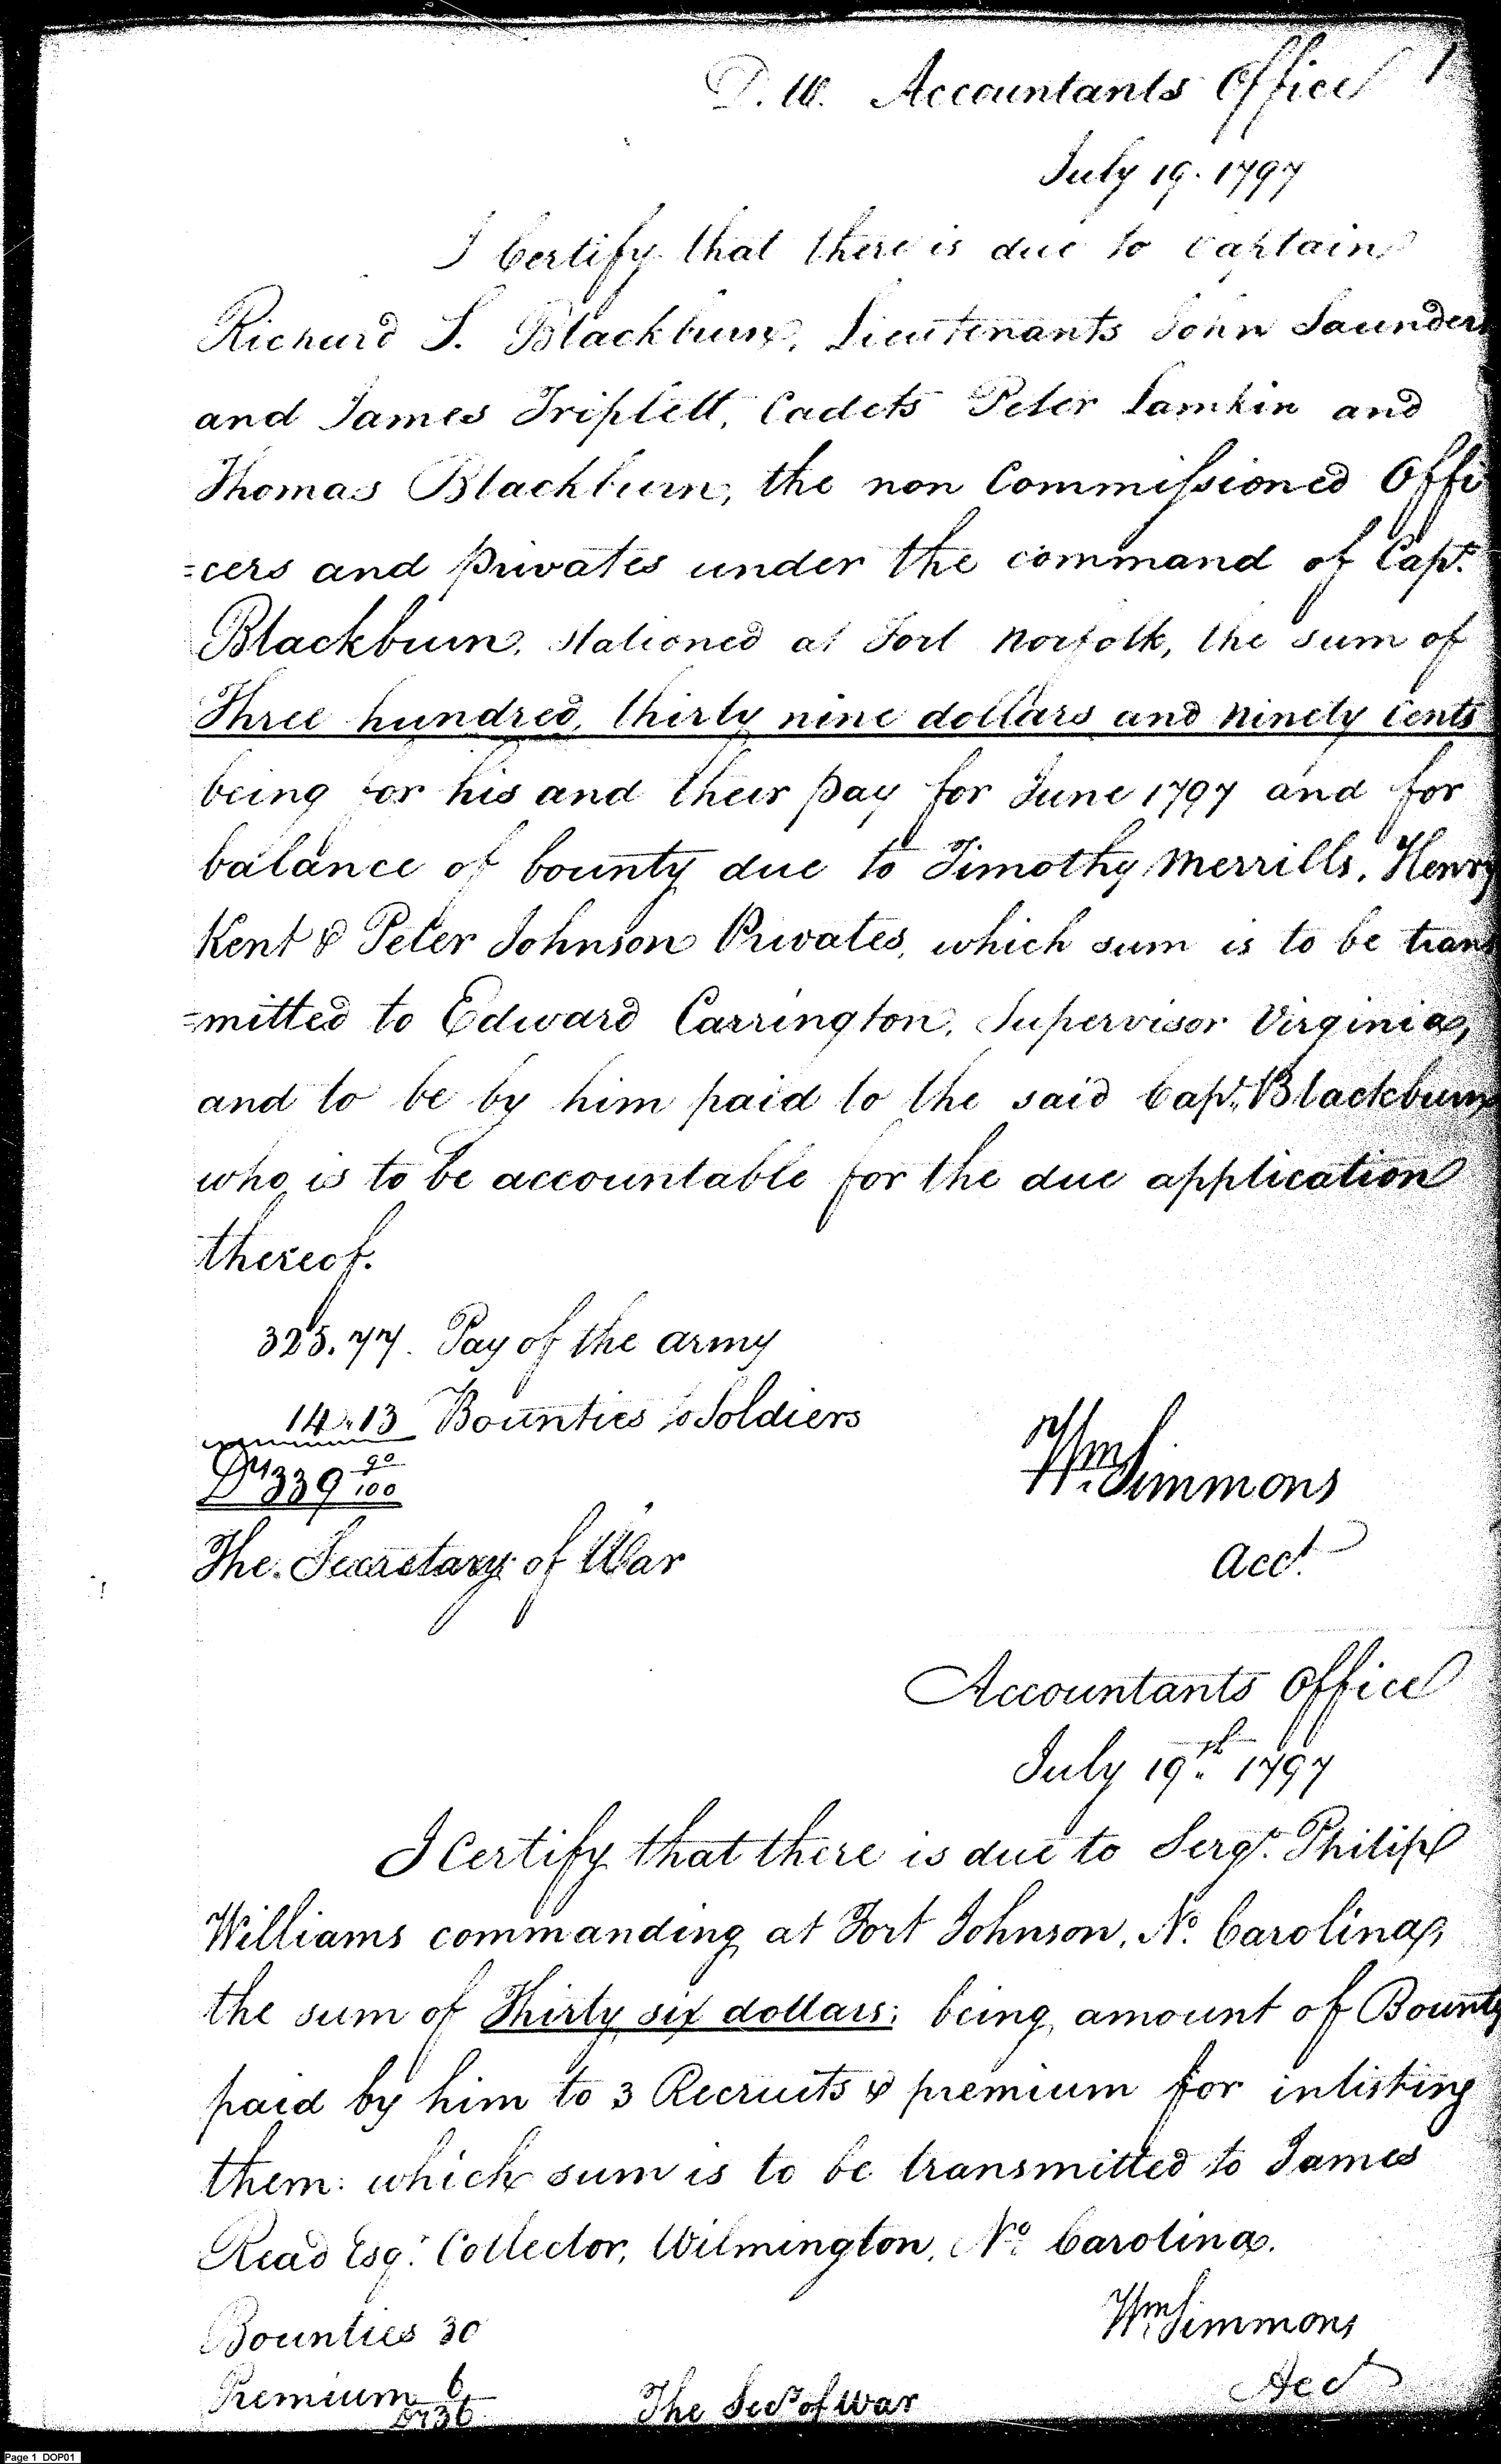 D. W. Accountants Office 1
July 19. 1797
I Certify that there is due to Captain
Richard S. Blackburn, Lieutenants John Saunders
and James Triplett, Cadets Peter Lamkin and
Thomas Blackburn, the non Commissioned Offi
=cers and privates under the command of Capt.
Blackburn, stationed at Fort Norfolk, the sum of
Three hundred, thirty nine dollars and ninety Cents
being for his and their pay for June 1797 and for
balance of bounty due to Timothy Merrills, Henry
Kent & Peter Johnson Privates, which sum is to be trans
=mitted to Edward Carrington, Supervisor Virginia,
and to be by him paid to the said Capt. Blackburn
who is to be accountable for the due application
thereof.
325.77. Pay of the army
14.13 Bounties to Soldiers
Drs 339 90/100
Wm Simmons
The Secretary of War
acct.
Accountants Office
July 19th. 1797
I Certify that there is due to Sergt. Philip
Williams commanding at Fort Johnson, No. Carolina,
the sum of Thirty six dollars; being amount of Bounty
paid by him to 3 Recruits & premium for inlisting
them: which sum is to be transmitted to James
Read Esqr. Collector, Wilmington, No. Carolina.
Bounties 30
Wm Simmons
Premium 6
Acct
Drs 36
The Secy of War
Page 1 DOP01